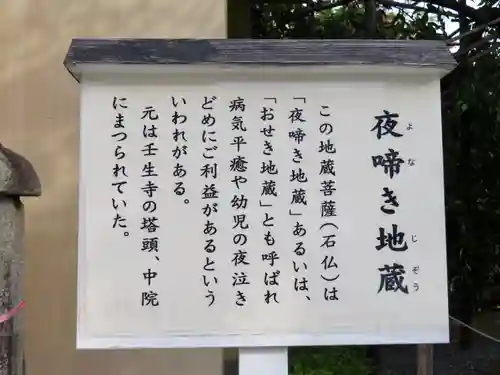 夜啼き地蔵
よな じぞう
この地蔵菩薩(石仏)は
「夜啼き地蔵」あるいは、
「おせき地蔵」とも呼ばれ
病気平癒や幼児の夜泣き
どめにご利益があるという
いわれがある。
元は壬生寺の塔頭、中院
にまつられていた。